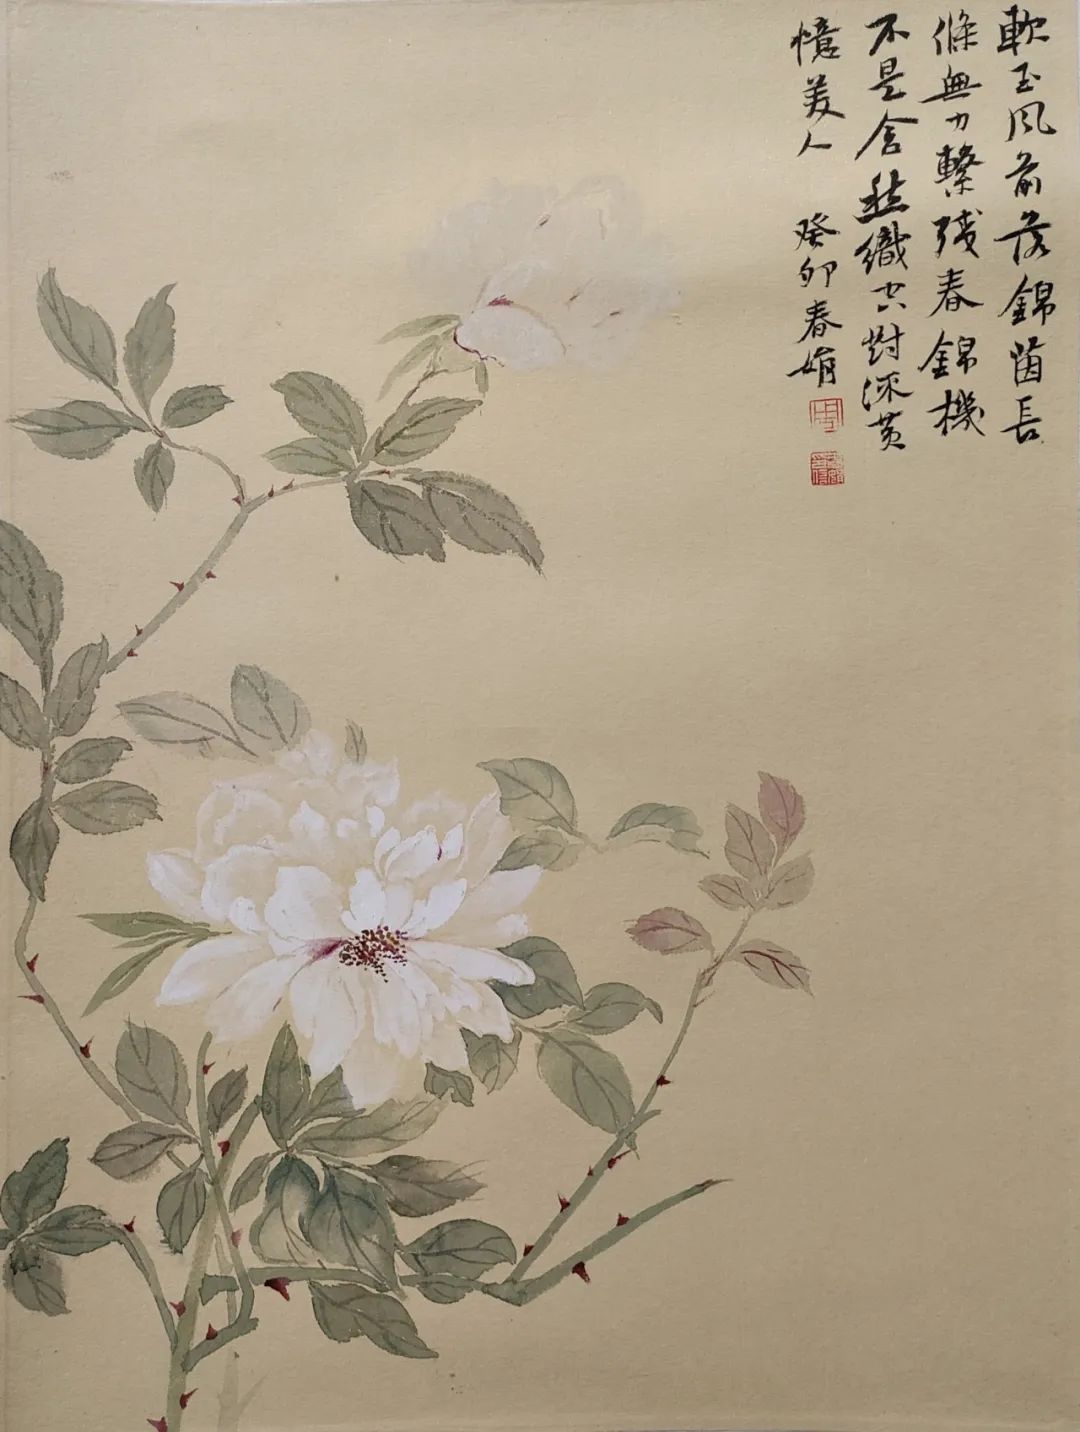 軟玉風前落錦茵長
條無力繫殘春錦機
不是含愁織空對流黃
憶美人 癸卯春娟
周